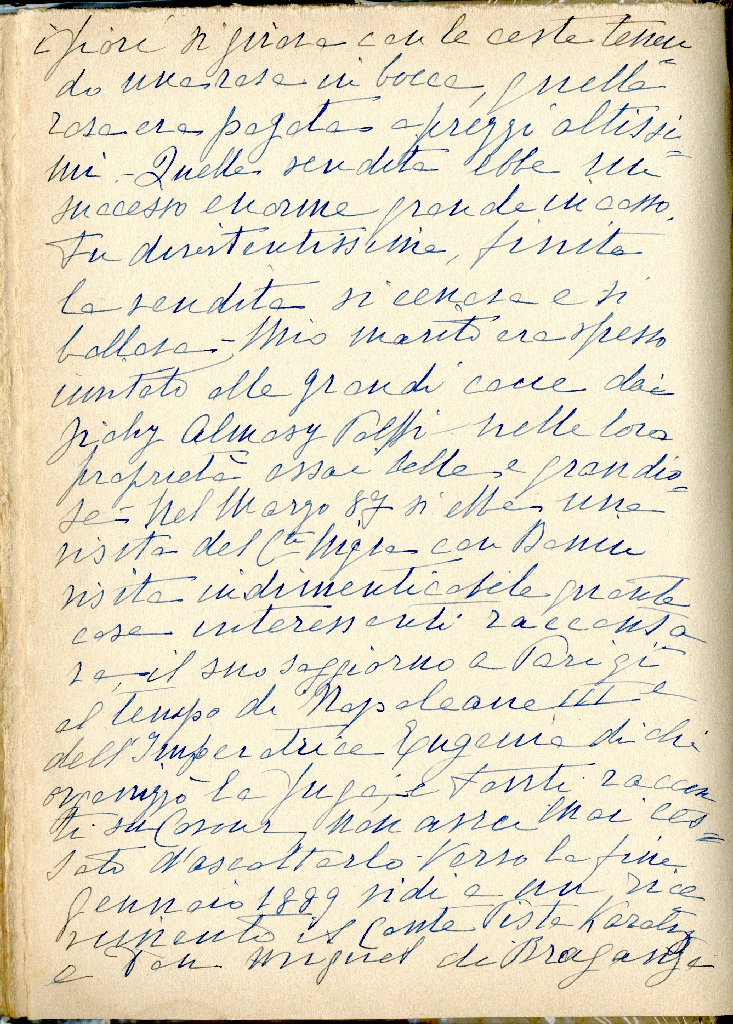 i fiori si girava con le ceste tenen
do una rosa in bocca, quella
rosa era pagata a prezzi altissi=
mi - Quella vendita ebbe un
successo enorme grande incasso.
Fu divertentissima, finita
la vendita si cenava e si
ballava - Mio marito era spesso
invitato alle grandi cacce dai
Zichy Almasy Palffi nelle loro
proprietà assai belle e grandio=
se - Nel Marzo 87 si ebbe una
visita del Cte Nigra con
visita indimenticabile quante
cose interessanti racconta
va, il suo soggiorno a Parigi
al tempo di Napoleone III e
dell'Imperatrice Eugenia di chi
organizzò la fuga, e tanti raccon
ti su Cavour, non avrei mai ces=
sato d'ascoltarlo - Verso la fine
gennaio 1889 vidi a un rice
vimento il Conte Pista Karoly
e Don Miguel di Braganza